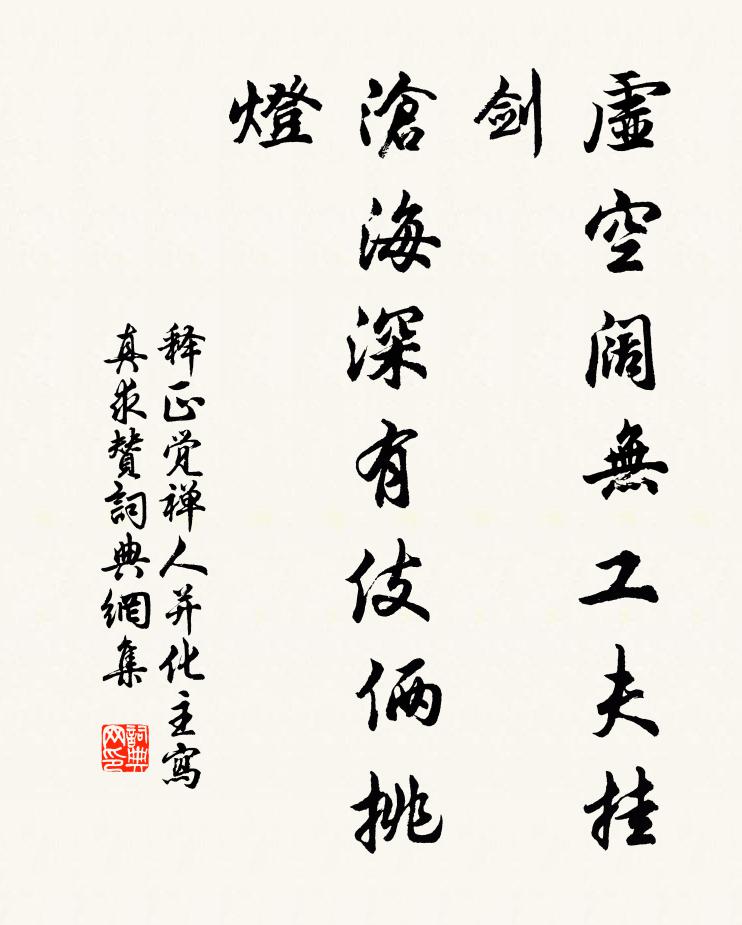 虛空闊無工夫挂
剑
滄海深有伎倆挑
燈
释正覚禅人并化主寫
真求贊詞典網集
詞典网印